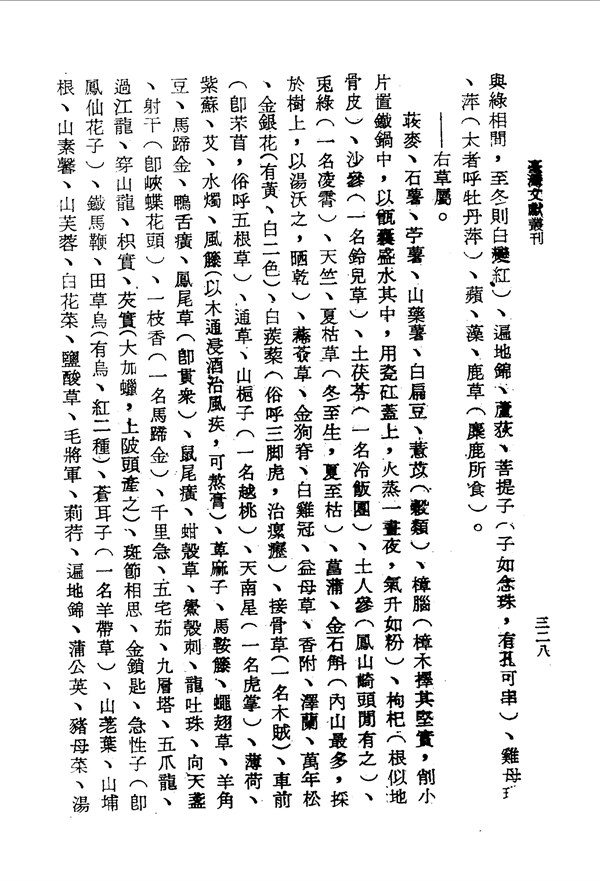 臺灣文獻叢刊
三二八
與綠相間，至冬則白變紅）、遍地錦、蘆荻、菩提子（子如念珠，有孔可串）、雞母珍
、萍（太者呼牡丹萍）、蘋、藻、鹿草（麋鹿所食）。
——右草屬。
荍麥、石薯、芋薯、山藥薯、白扁豆、薏苡（穀類）、樟腦（樟木擇其堅實，削小
片置鐵鍋中，以甑囊盛水其中，用瓷缸蓋上，火蒸一晝夜，氣升如粉）、枸杞（根似地
骨皮）、沙參（一名鈴兒草）、土茯苓（一名冷飯團）、土人參（鳳山崎頭閒有之）、
兎綠（一名凌霄）、天竺、夏枯草（冬至生，夏至枯）、菖蒲、金石斛（內山最多，採
於樹上，以湯沃之，晒乾）、薟草、金狗脊、白雞冠、益母草、香附、澤蘭、萬年松
、金銀花（有黃、白二色）、白蒺藜（俗呼三脚虎，治瘰癧）、接骨草（一名木賊）、車前
（卽芣苢，俗呼五根草）、通草、山梔子（一名越桃）、天南星（一名虎掌）、薄荷、
紫蘇、艾、水燭、風籐（以木通浸酒治風疾，可熬膏）、萆麻子、馬鞍籐、蠅翅草、羊角
豆、馬蹄金、鴨舌癀、鳳尾草（卽貫衆）、鼠尾癀、蚶殼草、鱟殼刺、龍吐珠、向天盞
、射干（卽峽蝶花頭）、一枝香（一名馬蹄金）、千里急、五宅茄、九層塔、五爪龍、
過江龍、穿山龍、枳實、芡實（大加蠟，上陂頭產之）、斑節相思、金鎖匙、急性子（卽
鳳仙花子）、鐵馬鞭、田草烏（有烏、紅二種）、蒼耳子（一名羊帶草）、山荖葉、山埔
根、山素馨、山芙蓉、白花菜、鹽酸草、毛將軍、莿荇、遍地錦、蒲公英、豬母菜、湯